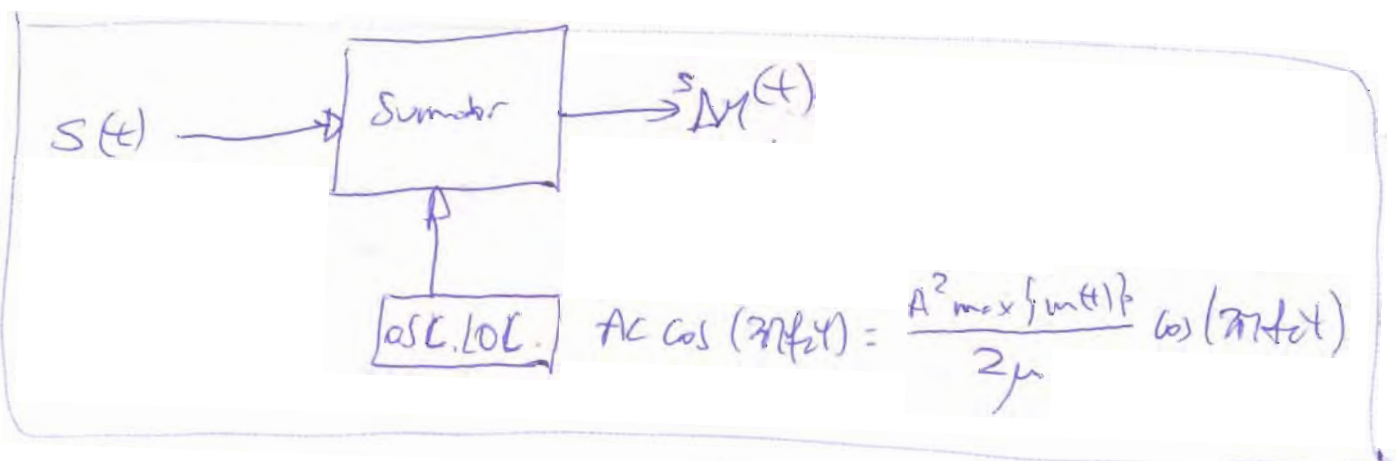 S(t)
Sumador
S_AM(t)
OSC. LOC.
AC cos(2πfct) = A² max{m(t)} / 2μ cos(2πfct)